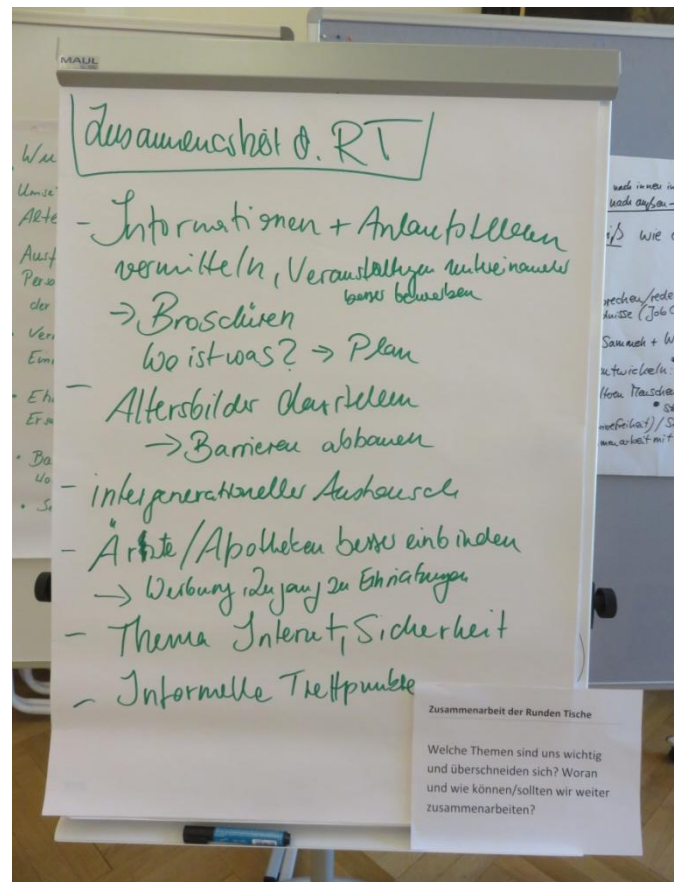 MAUL
Zusammenarbeit d. RT
- Informationen + Anlaufstellen
vermitteln, Veranstaltungen untereinander
besser bewerben
→ Broschüren
Wo ist was? → Plan
- Altersbilder darstellen
→ Barrieren abbauen
- intergenerationeller Austausch
- Ärzte/Apotheken besser einbinden
→ Werbung, Zugang zu Einrichtungen
- Thema Internet, Sicherheit
- Informelle Treffpunkte
Zusammenarbeit der Runden Tische
Welche Themen sind uns wichtig
und überschneiden sich? Woran
und wie können/sollten wir weiter
zusammenarbeiten?
Umse
Alte
Pers
der
nach innen
nach außen
wie